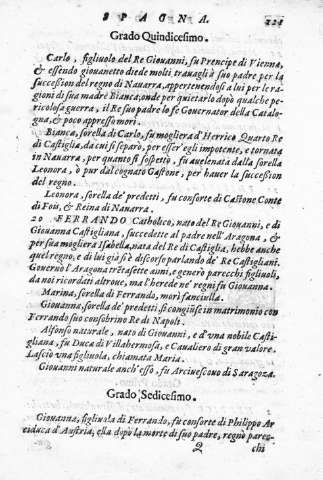 SPAGNA. 121
Grado Quindicesimo.
Carlo, figliuolo del Re Giouanni, fu Prencipe di Vienna,
& essendo giouanetto diede molti trauagli à suo padre per la
succession del regno di Nauarra, appertenendosi a lui per le ra-
gioni di sua madre Bianca; onde per quietarlo dopò qualche pe-
ricolosa guerra, il Re suo padre lo fe Gouernator della Catalo-
gna, & poco appresso morì.
Bianca, sorella di Carlo, fu mogliera d'Herrico Quarto Re
di Castiglia, da cui si separò, per esser'egli impotente, e tornata
in Nauarra, per quanto si sospettò, fu auelenata dalla sorella
Leonora, ò pur dal cognato Gastone, per hauer la succession
del regno.
Leonora, sorella de' predetti, fu consorte di Gastone Conte
di Fois, & Reina di Nauarra.
20 FERRANDO Catholico, nato del Re Giouanni, e di
Giouanna Castigliana, succedette al padre nell'Aragona, &
per sua mogliera Isabella, nata del Re di Castiglia, hebbe anche
quel regno; e di lui già s'è discorso parlando de' Re Castigliani.
Gouernò l'Aragona trētasette anni, e generò parecchi figliuoli,
da noi ricordati altroue, ma l'herede ne' regni fu Giouanna.
Marina, sorella di Ferrando, morì fanciulla.
Giouanna, sorella de' predetti si congiunse in matrimonio con
Ferrando suo consobrino Re di Napoli.
Alfonso naturale, nato di Giouanni, e d'vna nobile Casti-
gliana, fu Duca di Villahermosa, e Caualiero di gran valore.
Lasciò vna figliuola, chiamata Maria.
Giouanni naturale anch'esso, fu Arciuescouo di Saragoza.
Grado Sedicesimo.
Giouanna, figliuola di Ferrando, fu consorte di Philippo Ar
ciduca d'Austria; ella dopò la morte di suo padre, regnò parec-
Q chi